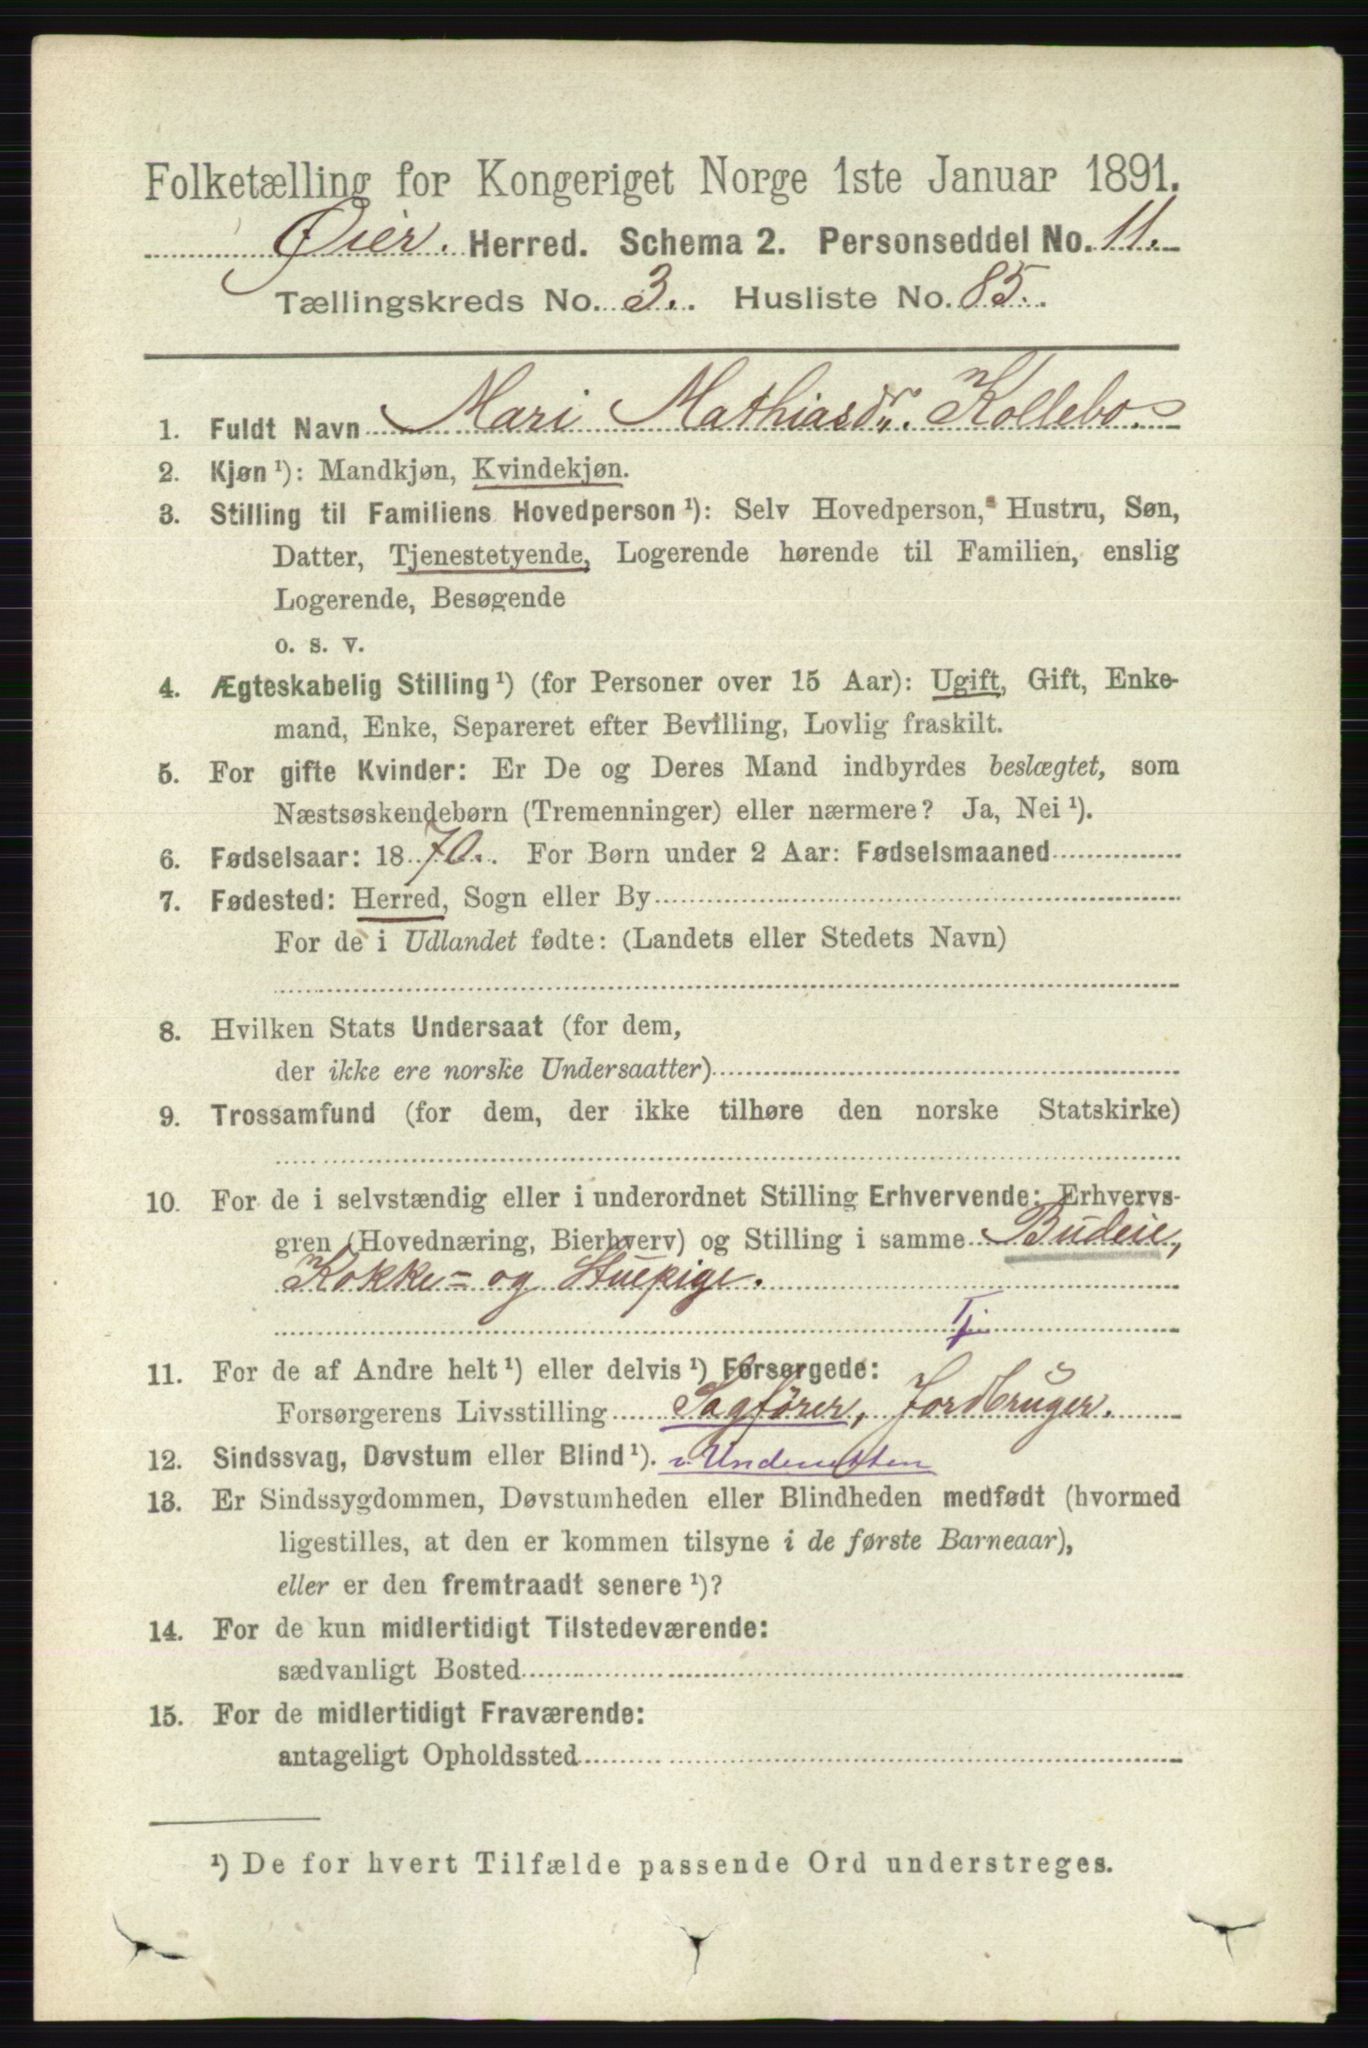 Folketælling for Kongeriget Norge 1ste Januar 1891.
Øier. Herred. Schema 2. Personseddel No. 11.
Tællingskreds No. 3. Husliste No. 85.
1. Fuldt Navn Mari Mathiasdr. Kollebo.
2. Kjøn ¹): Mandkjøn, Kvindekjøn.
3. Stilling til Familiens Hovedperson ¹): Selv Hovedperson, Hustru, Søn,
Datter, Tjenestetyende, Logerende hørende til Familien, enslig
Logerende, Besøgende
o. s. v.
4. Ægteskabelig Stilling ¹) (for Personer over 15 Aar): Ugift, Gift, Enke-
mand, Enke, Separeret efter Bevilling, Lovlig fraskilt.
5. For gifte Kvinder: Er De og Deres Mand indbyrdes beslægtet, som
Næstsøskendebørn (Tremenninger) eller nærmere? Ja, Nei ¹).
6. Fødselsaar: 1870. For Børn under 2 Aar: Fødselsmaaned
7. Fødested: Herred, Sogn eller By
For de i Udlandet fødte: (Landets eller Stedets Navn)
8. Hvilken Stats Undersaat (for dem,
der ikke ere norske Undersaatter)
9. Trossamfund (for dem, der ikke tilhøre den norske Statskirke)
10. For de i selvstændig eller i underordnet Stilling Erhvervende: Erhvervs-
gren (Hovednæring, Bierhverv) og Stilling i samme Budeie,
Kokke= og Stuepige.
Tj
11. For de af Andre helt ¹) eller delvis ¹) Forsørgede:
Forsørgerens Livsstilling Sagfører, Jordbruger.
12. Sindssvag, Døvstum eller Blind ¹). v. Underretten
13. Er Sindssygdommen, Døvstumheden eller Blindheden medfødt (hvormed
ligestilles, at den er kommen tilsyne i de første Barneaar),
eller er den fremtraadt senere ¹)?
14. For de kun midlertidigt Tilstedeværende:
sædvanligt Bosted
15. For de midlertidigt Fraværende:
antageligt Opholdssted
¹) De for hvert Tilfælde passende Ord understreges.